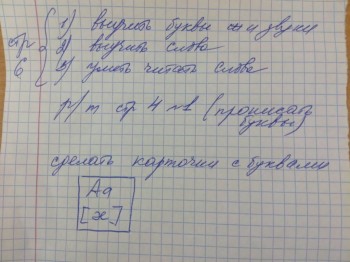 стр 6
1) выучить буквы и звуки
2) выучить слова
3) уметь читать слова
р/т стр 4 №1 (прописать буквы)
сделать карточки с буквами
Aa
[æ]